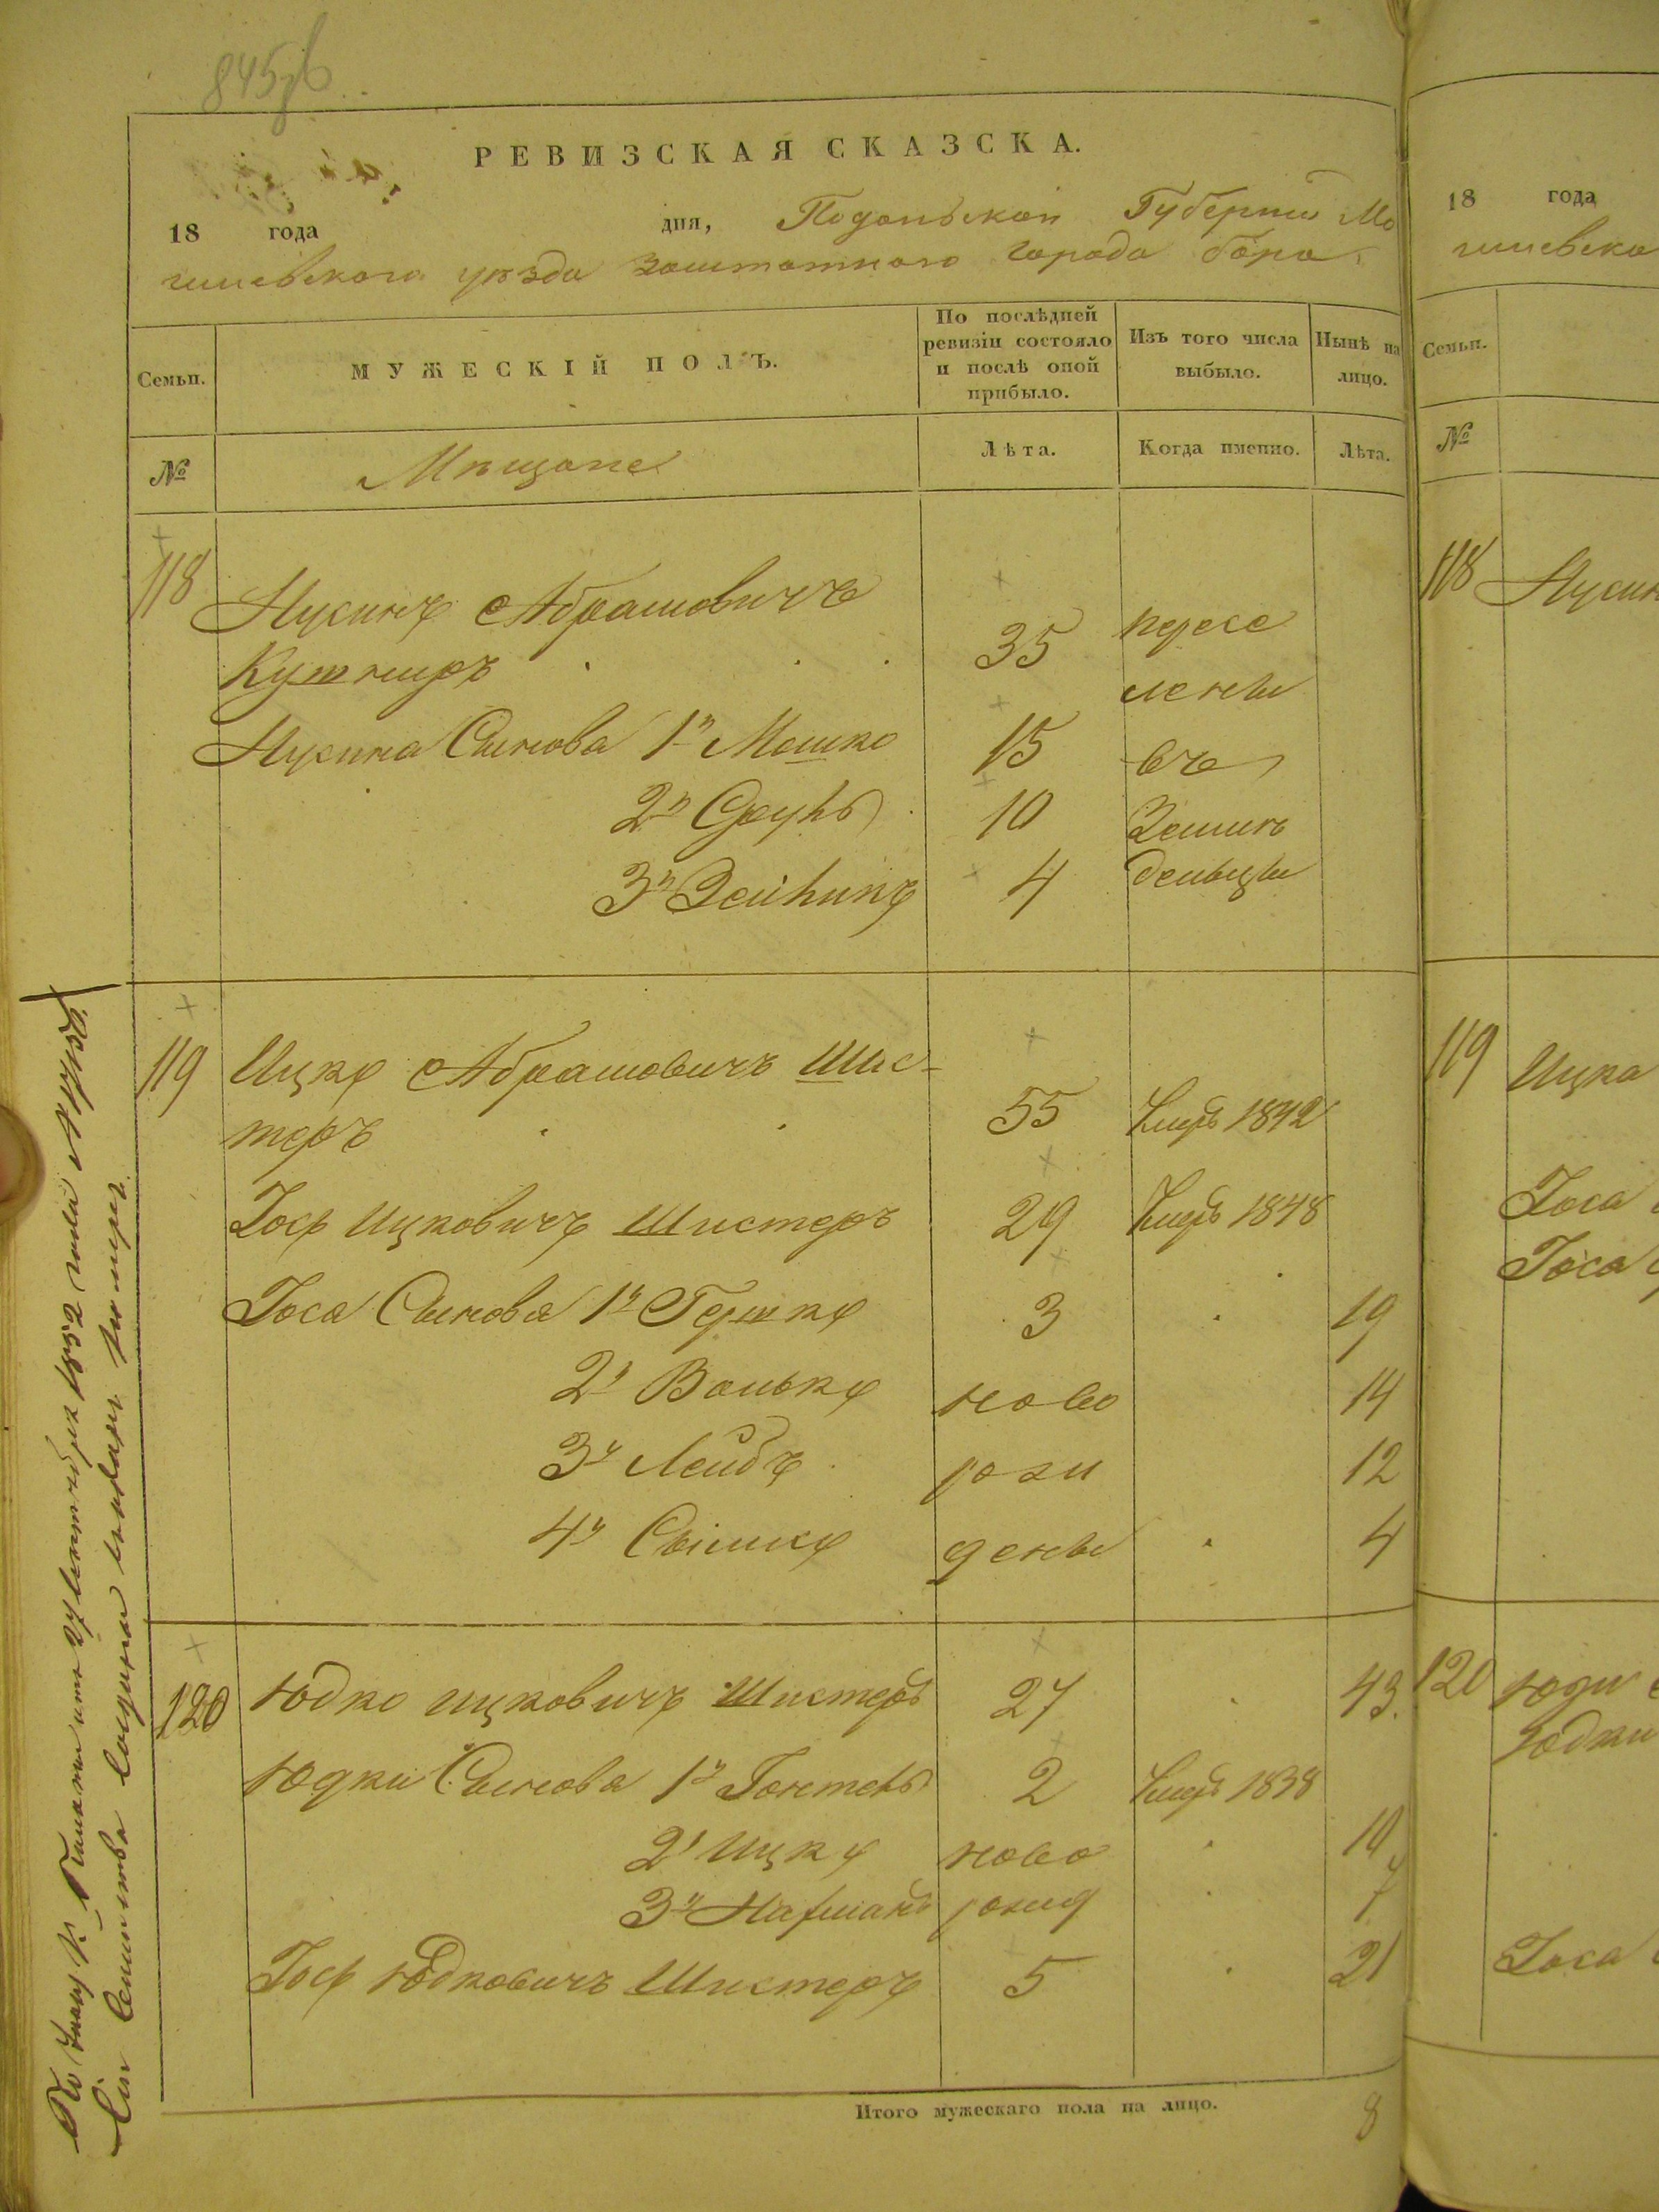 845
РЕВИЗСКАЯ СКАЗСКА.
18 года дня, Подольской Губернии Мо
гилевского уѣзда Заштатного города Бара
Семьи.
МУЖЕСКІЙ ПОЛЪ.
По послѣдней ревизіи состояло и послѣ оной прибыло.
Изъ того числа выбыло.
Нынѣ на лицо.
№
Мѣщане
Лѣта.
Когда именно.
Лѣта.
118 Нусинъ Абрамовичъ
Кушниръ 35 пересе
ленъ
Нусина Сынова 1й Мошко 15 въ
2й Сруль 10 Земле
дельцы
3й Зейликъ 4
119 Ицко Абрамовичъ Шис-
теръ 55 Умеръ 1842
Іось Ицковичъ Шистеръ 29 Умеръ 1848
Іоса Сынова 1й Гершко 3 19
2й Волько ново 14
3й Лейбъ рож 12
4й денъ 4
120 Юдко Ицковичъ Шистеръ 27 43.
Юдки Сынова 1й 2 Умеръ 1838
2й Ицко ново 10
3й Нахманъ рожд 7
Іось Юдковичъ Шистеръ 5 21
Итого мужескаго пола на лицо. 8
18 года
гилевско
Семьи.
№
118 Нусин
119 Ицка
Іоса
Іоса
120 Юдки
Юдки
Іоса